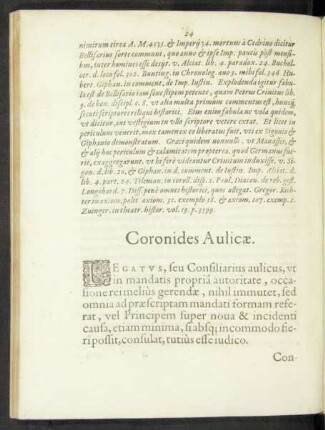 24
nimirum circa A. M. 4535. & Imperij 34. mortuus à Cedrino dicitur
Bellisarius forte communi, quo anno & ipse Imp. paucis post mensi-
bus, inter homines esse desijt. v. Alciat. lib. 4. paradox. 24. Buchol-
cer. d. loco fol. 302. Bunting. in Chronolog. anno 3. mihi fol. 346 Hu-
bert. Giphan. in comment. de Imp. Iustin. Explodenda igitur fabu-
la est de Bellisario iam suæ stipem petente, quam Petrus Crinitus lib.
9. de hon. discipl. c. 6. ut alia multa primum commentus est, hunc
secuti scriptores reliqui historici. Eius enim fabulæ ne vola quidem,
ut dicitur, aut vestigium in ullo scriptore vetere extat. Et licet in
periculum venerit, mox tamen ex eo liberatus fuit, uti ex Signio &
Giphanio demonstratum. Græci quidem nonnulli, ut Manasses, &
& alij hoc periculum & calamitatem præterea, quod Germanus fue-
rit, exaggerarunt. ut hi forè videantur Crinitum induxisse. v. Si-
gon. d. lib. 20. & Giphan. in d. comment. de Iustin. Imp. Alciat. d.
lib. 4. part. 24. Tileman. in coroll. disp. 1. Paul. Diacon. de reb. gest.
Longobard. 7. Iuss. penè omnes historici, quos allegat. Gregor. Rich-
ter in axiom. polit. axiom. 31. exemplo 18. & axiom. 107. exemp. 1.
Zuinger. in theatr. histor. vol. 19. p. 3599.
Coronides Aulicæ.
LEGATVS, seu Consiliarius aulicus, vt
in mandatis propriâ autoritate, occa-
sione rei melius gerendæ, nihil immutet, sed
omnia ad præscriptam mandati formam refe-
rat, vel Principem super noua & incidenti
causa, etiam minima, si absq; incommodo fie-
ri possit, consulat, tutius esse iudico.
Con-